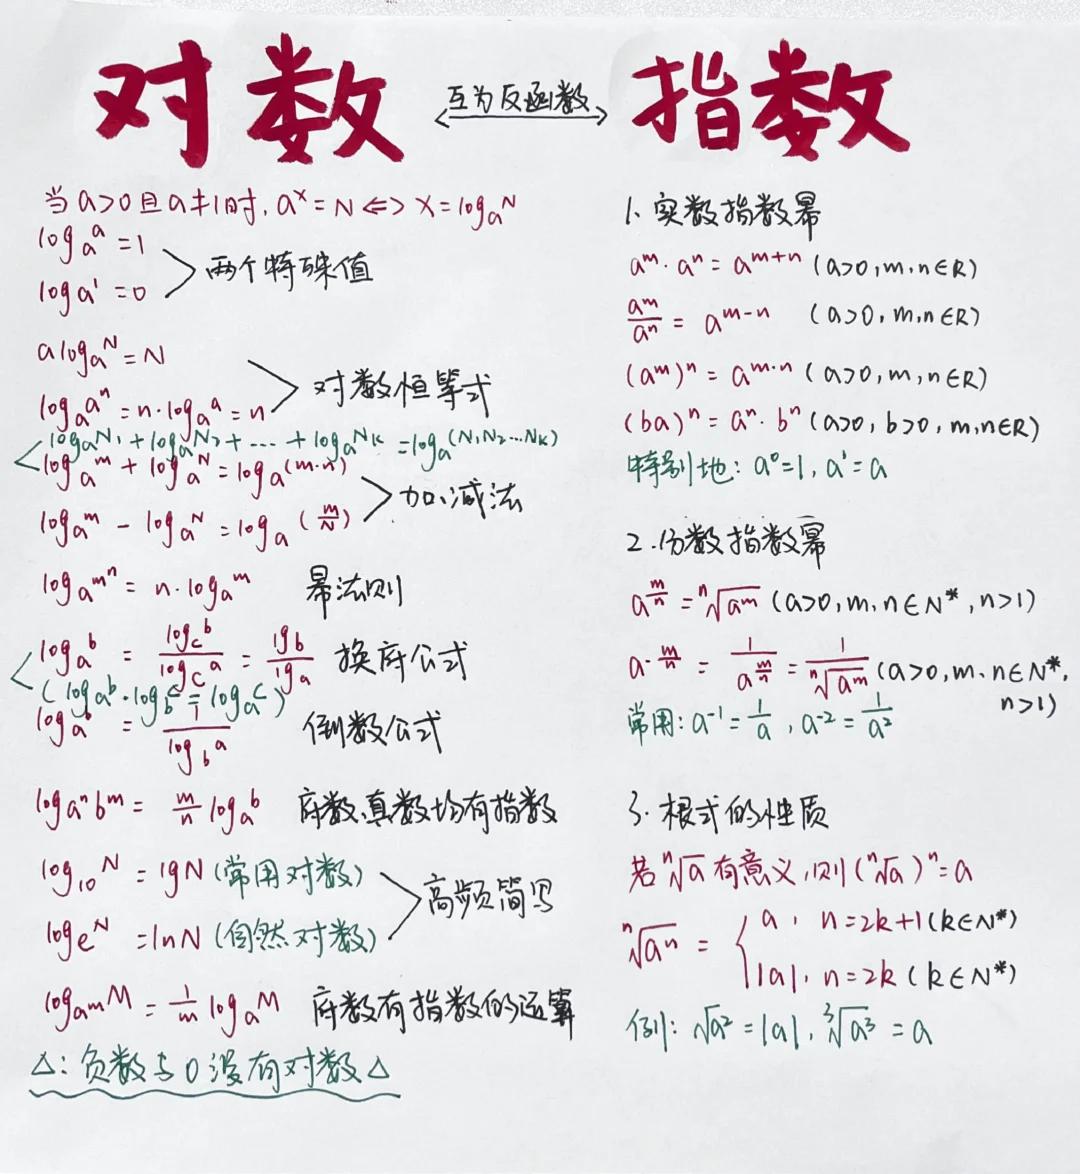 对数 互为反函数 指数
当a>0且a≠1时, aˣ=N⇔x=logₐN
logₐa=1
logₐ1=0
两个特殊值
a^logₐN=N
logₐaⁿ=n·logₐa=n
对数恒等式
logₐN₁+logₐN₂+…+logₐNₖ=logₐ(N₁N₂…Nₖ)
logₐm+logₐN=logₐ(m·n)
logₐm-logₐN=logₐ(m/N)
加、减法
logₐmⁿ=n·logₐm 幂法则
logₐb=log_c b/log_c a=lgb/lga 换底公式
(logₐb·log_b c=logₐc)
logₐb=1/log_b a 倒数公式
log_aⁿ bᵐ=m/n logₐb 底数、真数均有指数
log₁₀N=lgN(常用对数)
logₑN=lnN(自然对数)
高频简写
log_aᵐ M=1/m logₐM 底数有指数的运算
△:负数与0没有对数△
1、实数指数幂
aᵐ·aⁿ=aᵐ⁺ⁿ(a>0,m,n∈R)
aᵐ/aⁿ=aᵐ⁻ⁿ (a>0,m,n∈R)
(aᵐ)ⁿ=a^m·n(a>0,m,n∈R)
(ba)ⁿ=aⁿ·bⁿ(a>0,b>0,m,n∈R)
特别地:a⁰=1,a¹=a
2.分数指数幂
a^m/n=ⁿ√aᵐ(a>0,m、n∈N*,n>1)
a^-m/n=1/a^m/n=1/ⁿ√aᵐ(a>0,m、n∈N*,
n>1)
常用:a⁻¹=1/a,a⁻²=1/a²
3.根式的性质
若ⁿ√a有意义,则(ⁿ√a)ⁿ=a
ⁿ√aⁿ={a,n=2k+1(k∈N*)
|a|,n=2k(k∈N*)
例:√a²=|a|,³√a³=a